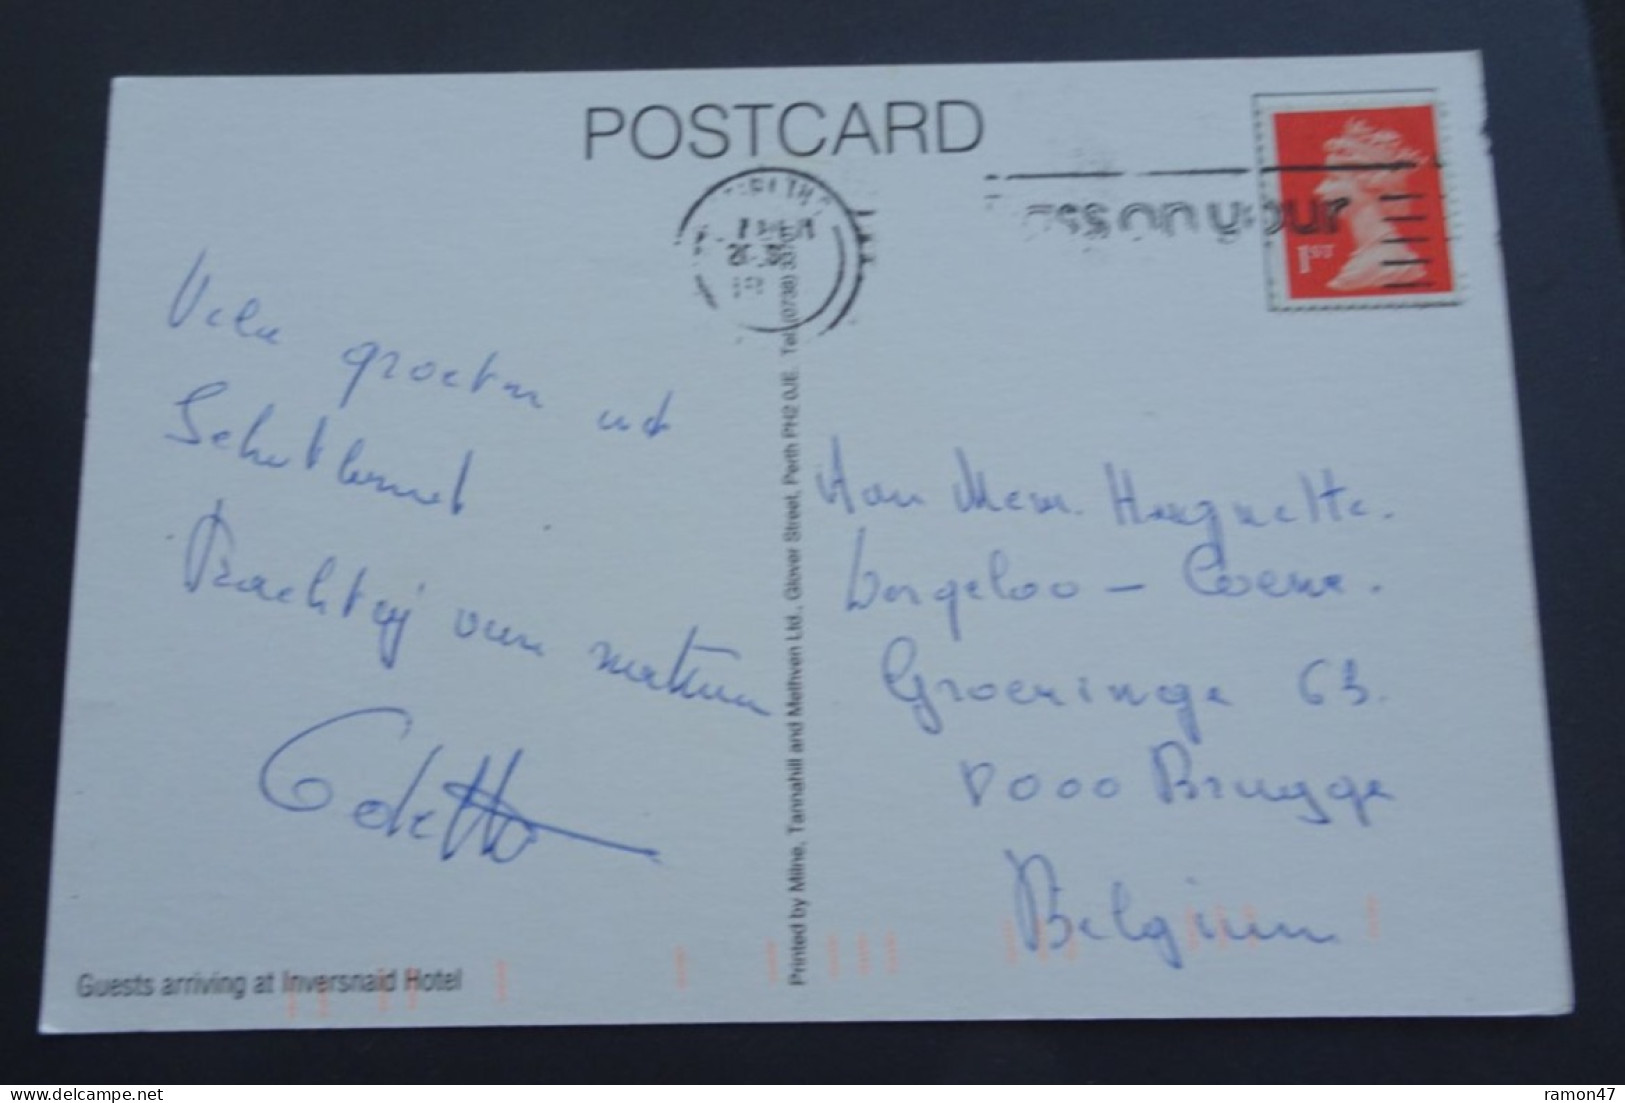 POSTCARD
1ST
Vele groeten uit
Schotland
Prachtig van natuur
Odette
Printed by Milne, Tannahill and Methven Ltd., Glover Street, Perth PH2 0JE. Tel: (0738)
Aan Mevr. Huguette.
Vergeloo - Coene.
Groeninge 63.
8000 Brugge
Belgium
Guests arriving at Inversnaid Hotel
ramon47